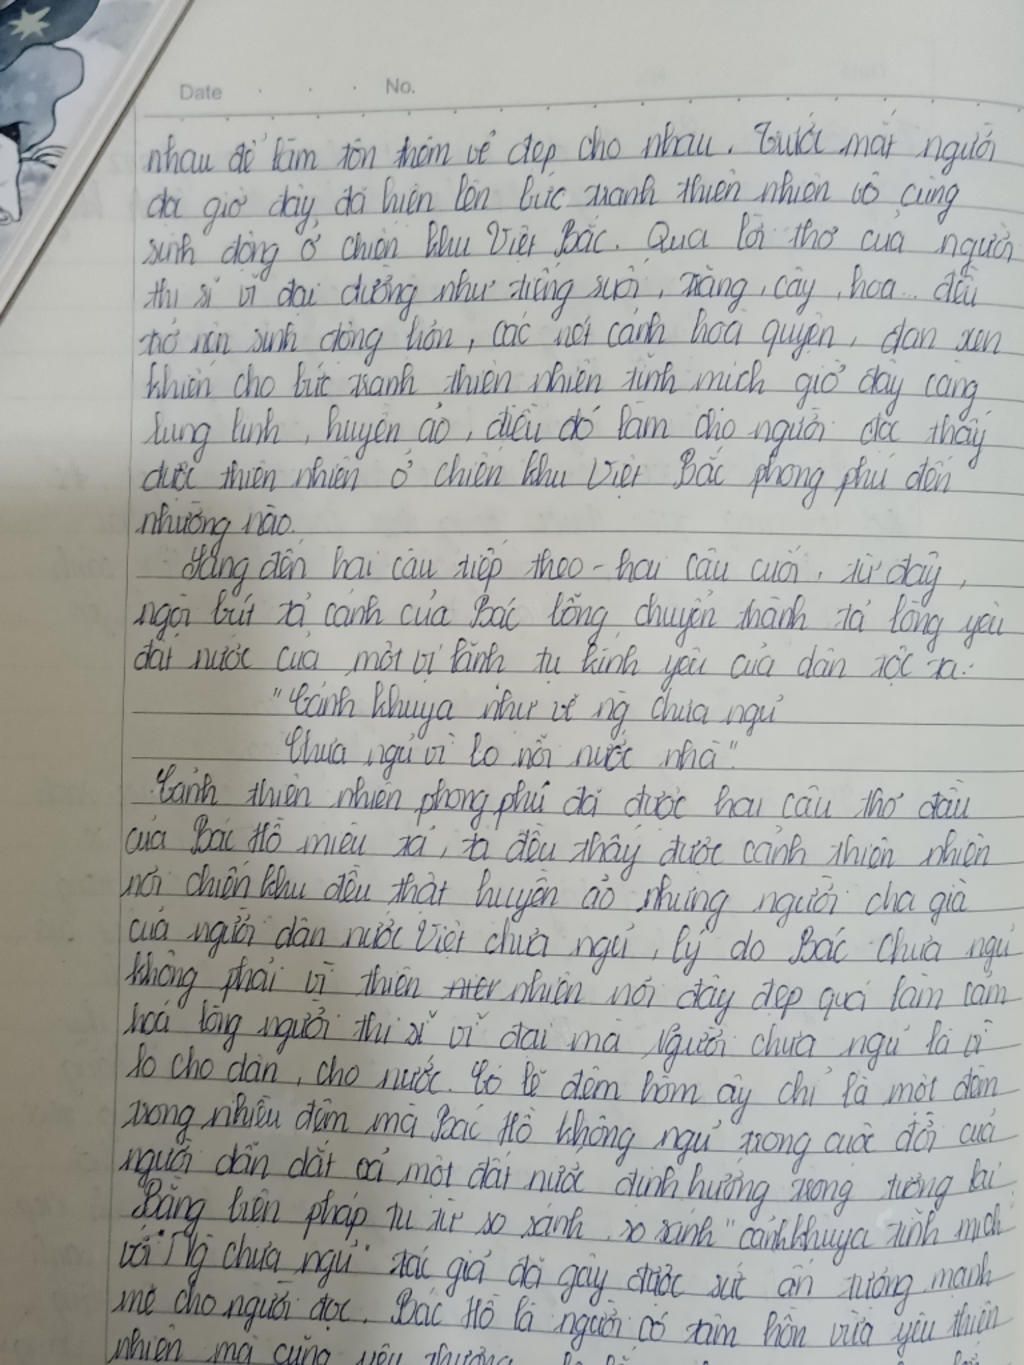 Date No.
nhau để làm tôn thêm vẻ đẹp cho nhau. Trước mắt người
đọc giờ đây đã hiện lên bức tranh thiên nhiên vô cùng
sinh động ở chiến khu Việt Bắc. Qua lời thơ của người
thi sĩ vĩ đại dường như tiếng suối, trăng, cây, hoa... đều
trở nên sinh động hơn, các nét cảnh hoà quyện, đan xen
khiến cho bức tranh thiên nhiên tĩnh mịch giờ đây càng
lung linh, huyền ảo, điều đó làm cho người đọc thấy
được thiên nhiên ở chiến khu Việt Bắc phong phú đến
nhường nào.
Sang đến hai câu tiếp theo - hai câu cuối, từ đây,
ngòi bút tả cảnh của Bác bỗng chuyển thành tả lòng yêu
đất nước của một vị lãnh tụ kính yêu của dân tộc ta:
"Cảnh khuya như vẽ ng chưa ngủ
Chưa ngủ vì lo nỗi nước nhà".
Cảnh thiên nhiên phong phú đã được hai câu thơ đầu
của Bác Hồ miêu tả, ta đều thấy được cảnh thiên nhiên
nơi chiến khu đều thật huyền ảo nhưng người cha già
của người dân nước Việt chưa ngủ, lý do Bác chưa ngủ
không phải vì thiên nhiên nơi đây đẹp quá làm cảm
hoá lòng người thi sĩ vĩ đại mà Người chưa ngủ là vì
lo cho dân, cho nước. Có lẽ đêm hôm ấy chỉ là một đêm
trong nhiều đêm mà Bác Hồ không ngủ trong cuộc đời của
người dẫn dắt cả một đất nước định hướng trong tương lai
Bằng biện pháp tu từ so sánh, so sánh "cảnh khuya tĩnh mịch"
với "ng chưa ngủ" tác giả đã gây được sức ấn tượng mạnh
mẽ cho người đọc. Bác Hồ là người có tâm hồn vừa yêu thiên
nhiên mà cũng yêu thương